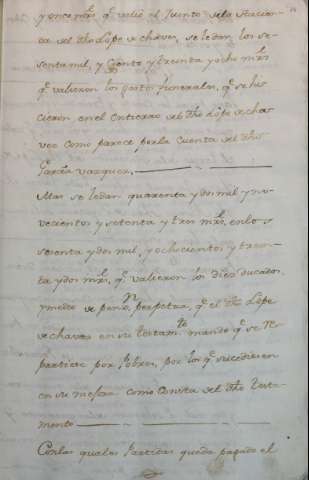 y once mrs, q valio el quinto de la
del dho Lope de chaves, se le dan, los se-
senta mil, y Ciento y treinta y ocho mrs
q valieron los gastos funerales, q se hi-
cieron en el entierro del dho Lope de cha-
ves como parece por la Cuenta del dho
Garcia vazquez.
Mas se le dan quarenta y dos mil y no-
vecientos y setenta y tres mrs, en los
setenta y dos mil, y ochocientos y trein-
ta y dos mrs, q valieron los diez ducados,
y medio de perpetua, q el dho Lope
de chaves en su testamto mando q se Re-
partiese por pobres, por los q sucediesen
en su como Consta del dho testa-
mento
Con las quales partidas queda pagado el